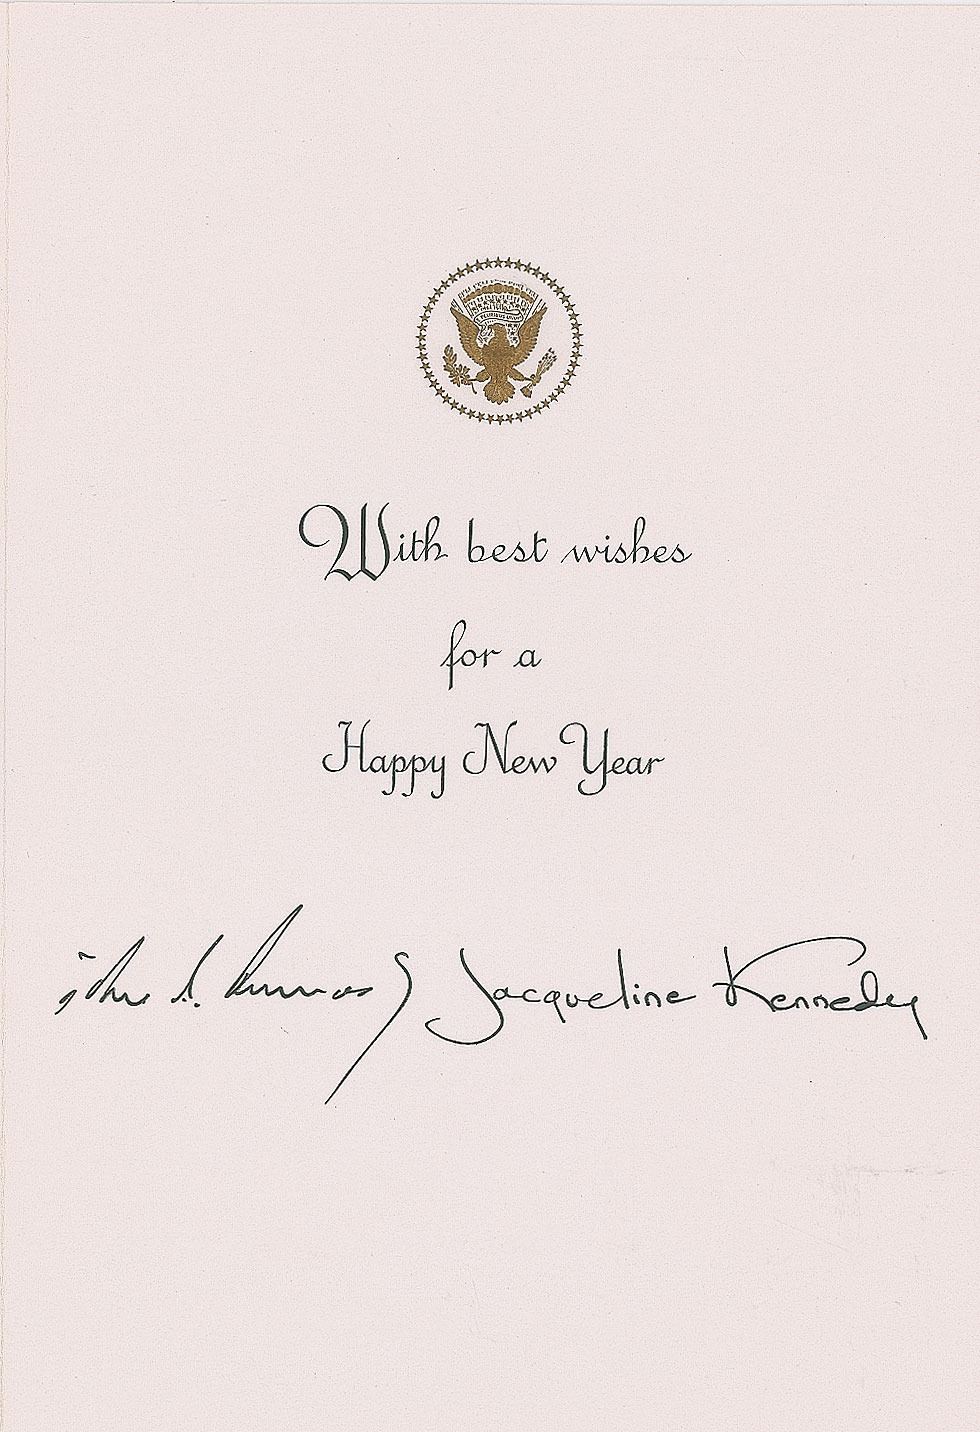 With best wishes
for a
Happy New Year
John F. Kennedy Jacqueline Kennedy